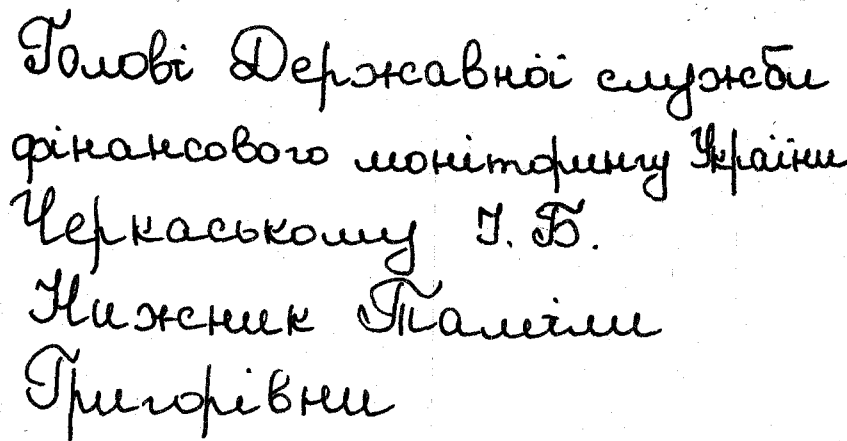 Голові Державної служби
фінансового моніторингу України
Черкаському І. Б.
Нижник Таміли
Григорівни